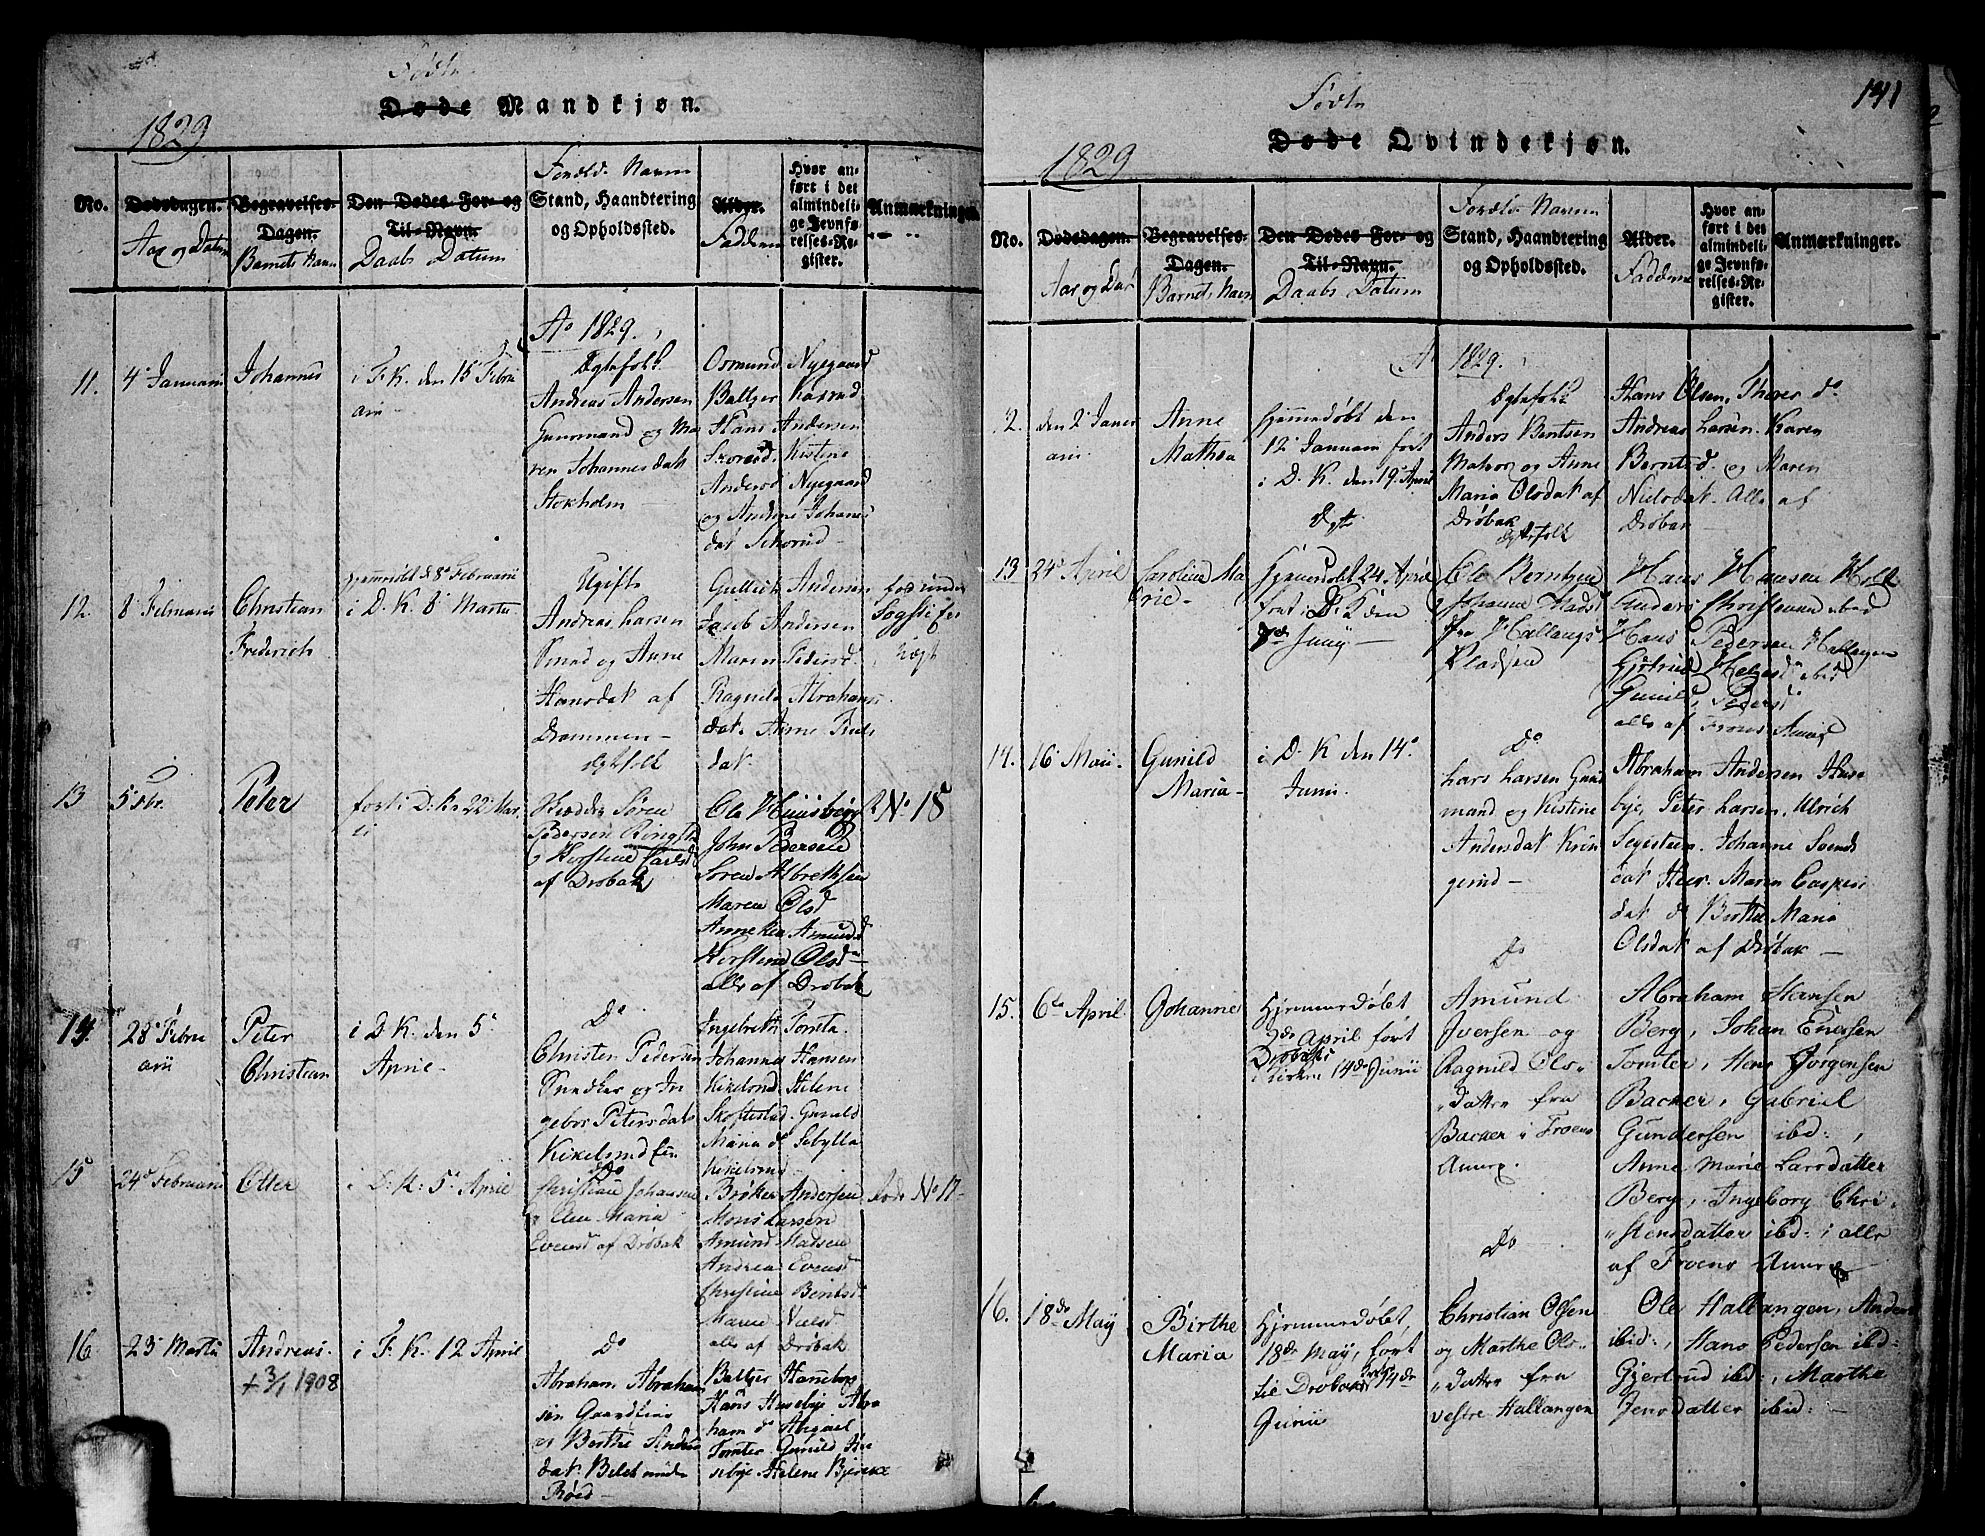 Fødte
Døde Mandkjøn.
1829
No.
Dødsdagen.
Aar og Datum
Begravelses-
Dagen.
Barnets Navn
Den Dødes For- og
Til-Navn.
Daabs Datum
Foreld. Navn
Stand, Haandtering
og Opholdssted.
Alder.
Faddere
Hvor an-
ført i det
almindeli-
ge Jevnfø-
relses-Re-
gister.
Anmærkninger.
Ao 1829.
11.
4de Januarii
Johannes
i F. K. den 15 Febru
arii
Ægtefolk
Andreas Andersen
Gaarmand og Ma
ren Johannesdat
Stokholm
Osmund Nygaard
Baltzer Kaasrud
Hans Andersen
Skorud Kistine
Andersd Nygaard
og Andrine Johanes
dat Schorud
12.
8de Februarii
Christian
Frederich
hjemmedøbt d 8de Februarii
i D. K. 8de Martii
Ugifte
Andreas Larsen
Smed og Anne
Hansdat af
Drammen
Gullick Andersen
Jacob Andersen
Maren Pedersd.
Ragnild Abrahams
dat. Anne
dat.
13
5 Fbr.
Peter
fort i D. K. 22 Mar
tii
Ægtefolk
Skrædder Søren
Pedersen Ringstd
og Kirstine Carlsd
af Drøbak
Ole Huusbye
John Pedersen
Søren Albrethsen
Maren Olsd
Annekea Amunds
Kirstine Olsd
alle af Drøbak
No. 15
14.
28 Febru
arii
Peter
Christian
i D. K. den 5te
April
Do
Christen Pedersen
og In
gebor Petersdat
Kikelsrud
Engebreth Tomta
Johannes Hansen
Kikelsrud Helene
Skoftestad. Gunild
Maria d Sebylla
Kikelsrud
15
24de Februarii
Otter
i D. K. 5te April
Do
Christian Johansen
Ellen Maria
Evensd af Drøbak
Brøker Andersen
Mons Larsen
Amund Madsen
Andrea Evensd
Christine Berntsd
Maren Nielsd
alle af Drøbak
No 17
16
23 Martii
Andreas.
+ 3/1 1908
i F. K. 12 April
Do
Abraham Abraham
sen
og Berthe Anders
dat
Røed
Baltzer Haneborg
Hans Husebye Abra
ham d Abigael
Tomter. Gunild Hu
sebye. Helene Bjercke
141
Fødte
Døde Qvindekjøn.
1829
No.
Dødsdagen.
Aar og Dat
Begravelses-
Dagen.
Barnets Navn
Den Dødes For- og
Til-Navn.
Daabs Datum
Foreld. Navne
Stand, Haandtering
og Opholdssted.
Alder.
Faddere
Hvor an-
ført i det
almindeli-
ge Jevnfø-
relses-Re-
gister.
Anmærkninger.
Ao 1829.
2.
den 2de Janu
arii
Anne
Mathea
hjemmedøbt den
12te Januarii fort
i D. K. den 19de April
Ægtefolk
Anders Bentsen
Matros og Anne
Maria Olsdat af
Drøbak
Hans Olsen, Therese do
Andreas Larsen. Karen
Berntsd. og Maren
Nielsdat. Alle af
Drøbak
13
24de April
Caroline Ma
rie
Hjemmedøbt 24 April
fort i D. K. den
7de Junij
Ægtefolk
Ole Berntzen
Johanne Madsd
fra Hallangs
Pladsen
Hans Hansen Holt
Anders Christensen ibid
Hans Pedersen Hallangen
Gjertrud Helgesd ibid
Gunild Pedersd
alle af Froens Annex
14.
16 Maii.
Gunild
Maria
i D. K. den 14de
Junii.
Do
Lars Larsen Gaard
mand og Kistine
Andersdat Krin
gerud
Abraham Andersen Huse
bye, Peter Larsen, Ulrich
Segesteen. Johanne Svends
dat Heer. Maren Caspers
dat do Berthe Maria
Olsdat af Drøbak
15.
6te April
Johanne
Hjemmedøbt
7de April fort
i Drøbaks
Kirke 14de Junii
Do
Amund
Iversen og
Ragnild Ols-
datter fra
Backer i Froens
Annex.
Abraham Hansen
Berg, Johan Enersen
Tomter, Hans Jørgensen
Backer, Gabriel
Gundersen ibd:,
Anne Marie Larsdatter
Berg, Ingeborg Chri-
stensdatter ibd: i alle
af Froens Annex
16.
18de Maÿ
Birthe
Maria
Hjemmedøbt
18de Maÿ, fort
tie Drøbaks 14de
Junii
Do
Christian Olsen
og Marthe Ols-
datter fra
Vestre Hallangen
Ole Hallangen, Anders
ibid:, Hans Pedersen ibd:
Gjertrud ibd:, Marthe
Jensdatter ibid: